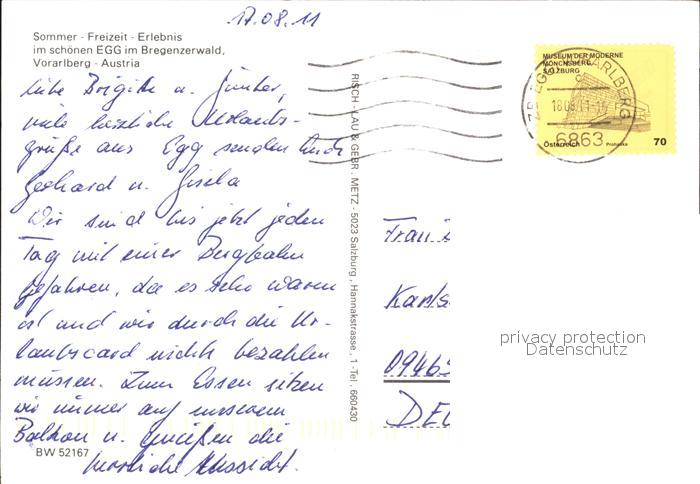 17.08.11
Sommer - Freizeit - Erlebnis
im schönen EGG im Bregenzerwald,
Vorarlberg - Austria
Liebe Brigitte u. Günther,
viele herzliche Urlaubs-
grüße aus Egg senden Euch
Gerhard u. Gisela
Wir sind bis jetzt jeden
Tag mit einer Bergbahn
gefahren, da es sehr warm
ist und wir durch die Ur-
laubscard nichts bezahlen
müssen. Zum Essen sitzen
wir immer auf unserem
Balkon u. genießen die
herrliche Aussicht.
BW 52167
RISCH - LAU & GEBR. METZ - 5023 Salzburg, Hannakstrasse, 1 - Tel. 660430
MUSEUM DER MODERNE
MÖNCHSBERG
SALZBURG
Österreich
70
EGG VORARLBERG
18.08.11
6863
Frau
Karls
0946
DE
privacy protection
Datenschutz